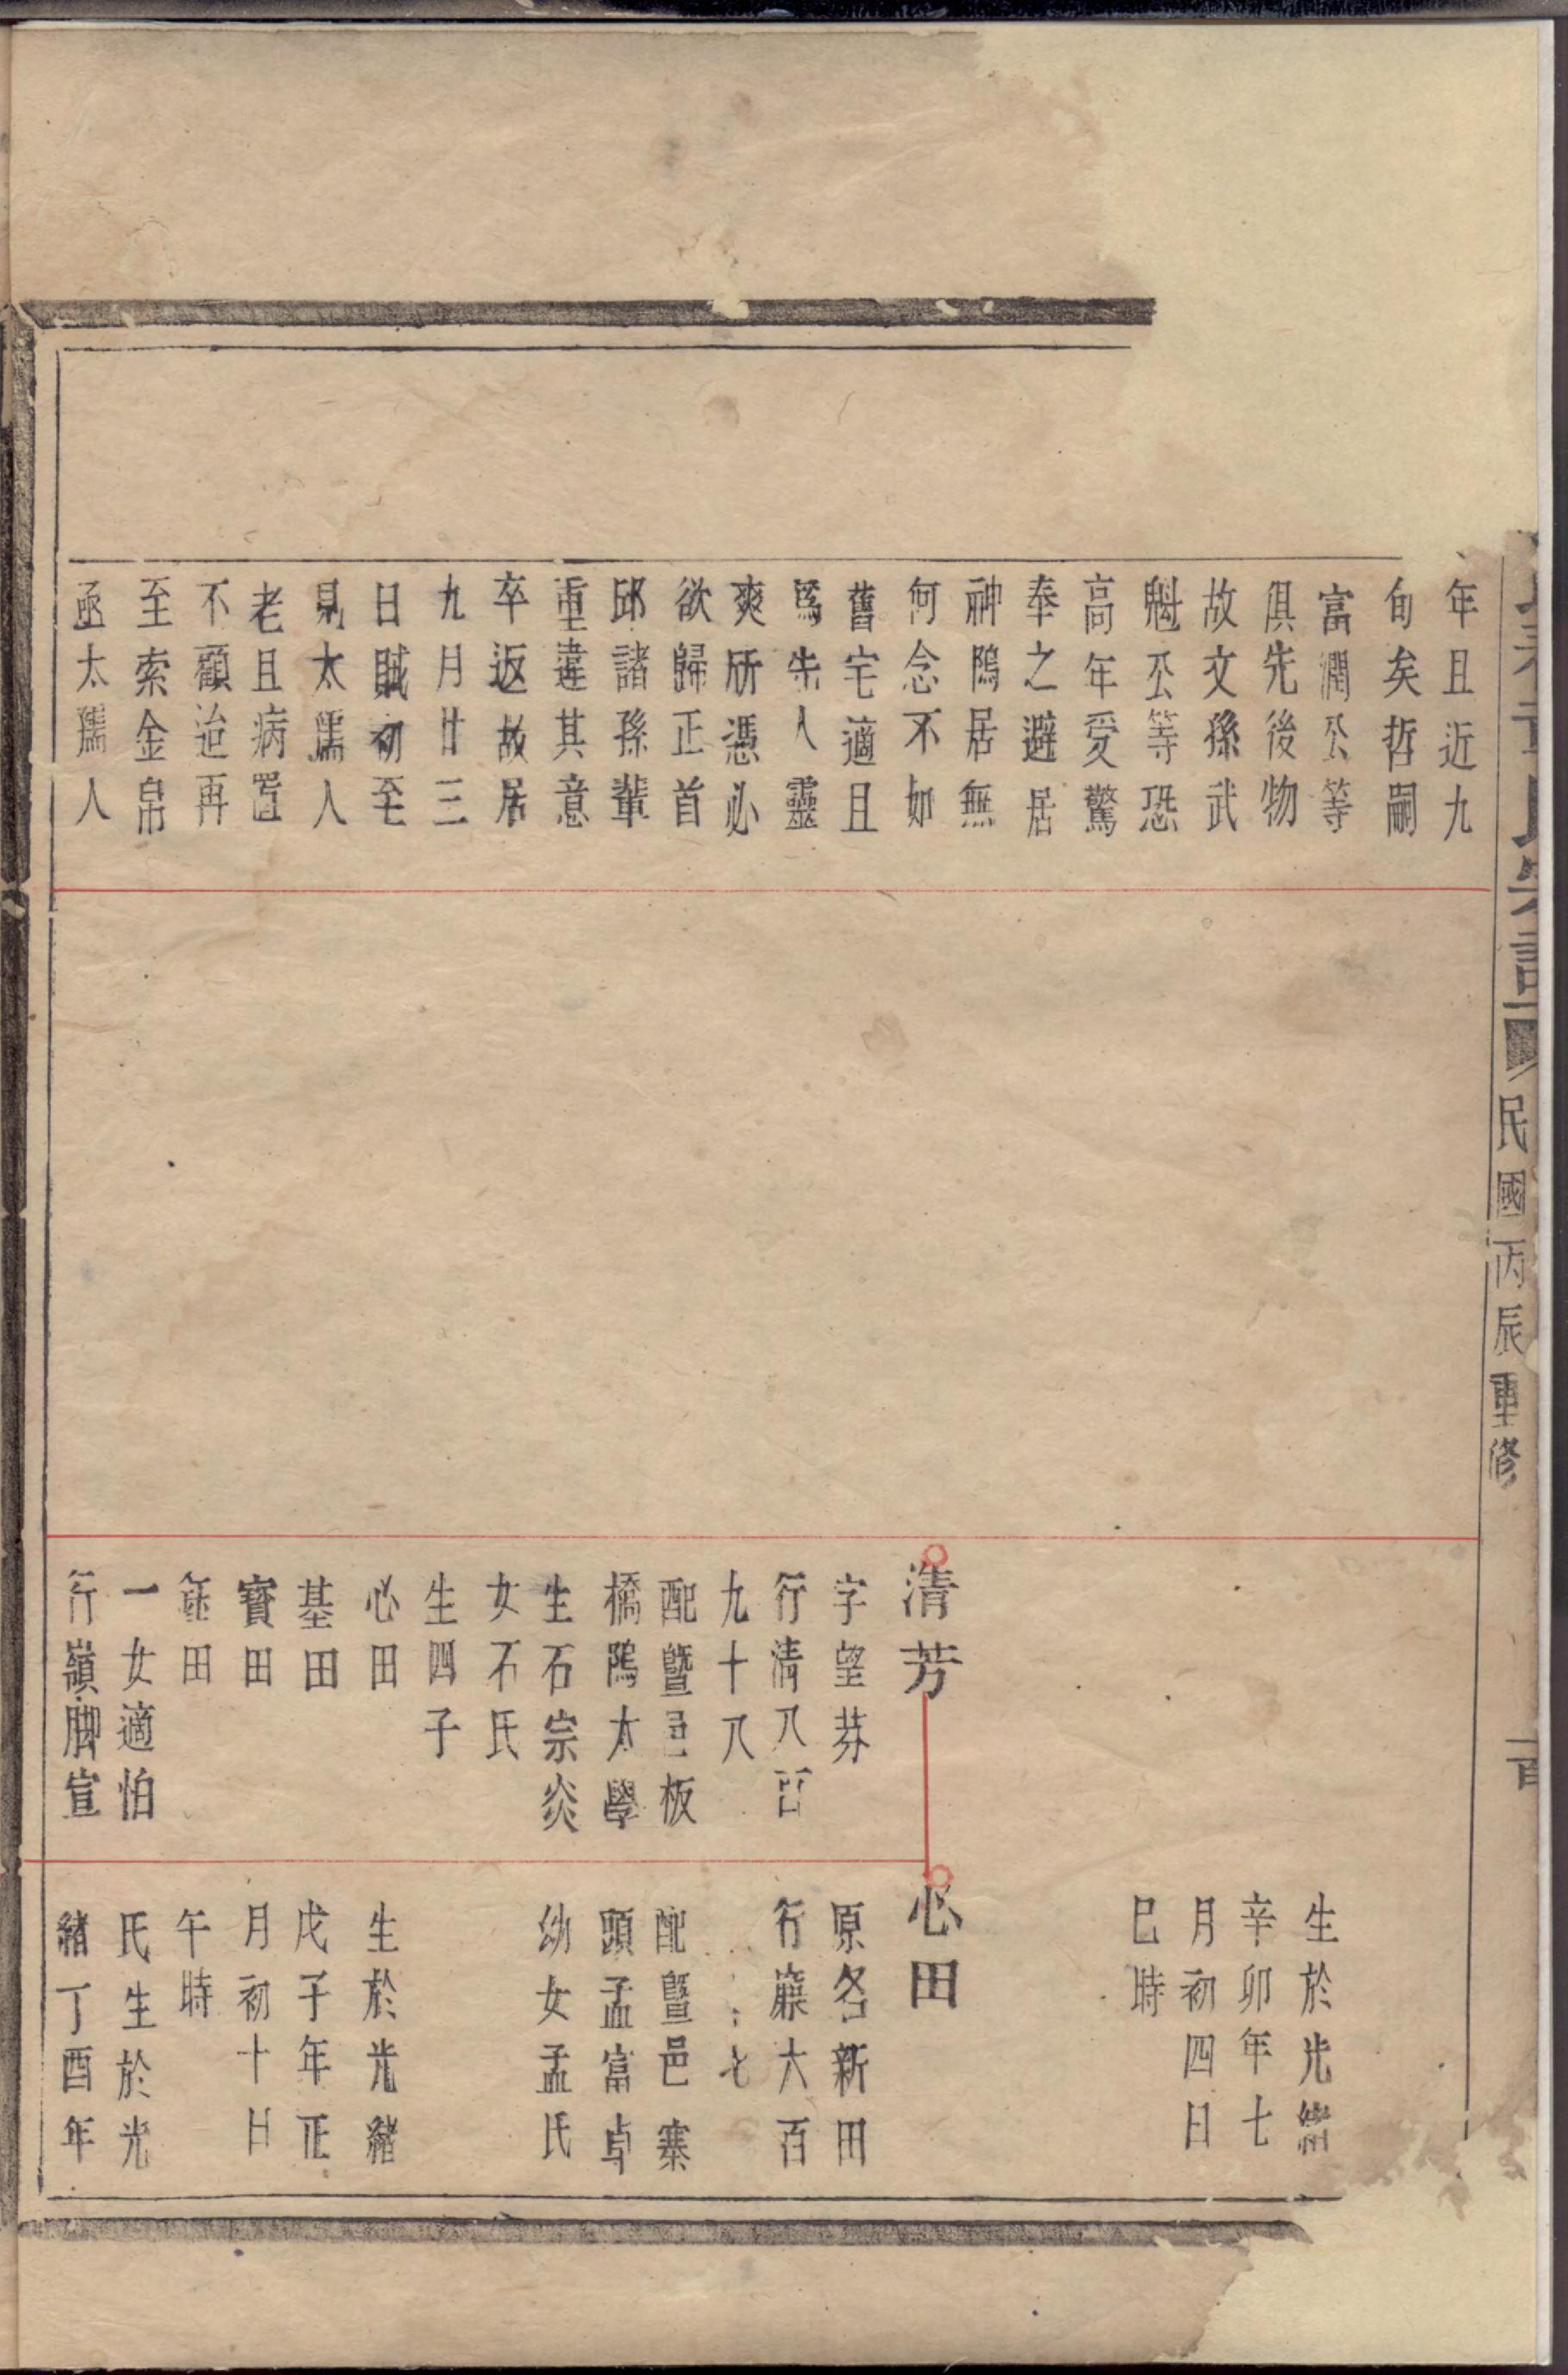 氏宗譜
民國丙辰重修
年且近九
旬矣哲嗣
富潤公等
俱先後物
故文孫武
魁公等恐
高年受驚
奉之避居
神隖居無
何念不如
舊宅適且
爲先人靈
爽所憑必
欲歸正首
邱諸孫輩
重違其意
卒返故居
九月廿三
日賊初至
見太孺人
老且病置
不顧迨再
至索金帛
亟太孺人
清芳
字望芬
行清八百
九十八
配暨邑板
橋隖太學
生石宗炎
女石氏
生四子
心田
基田
寶田
田
一女適怕
行嶺脚宣
生於光緒
辛卯年七
月初四日
巳時
心田
原名新田
行 六百
七
配暨邑寨
頭孟富卓
幼女孟氏
生於光緒
戊子年正
月初十日
午時
氏生於光
緒丁酉年